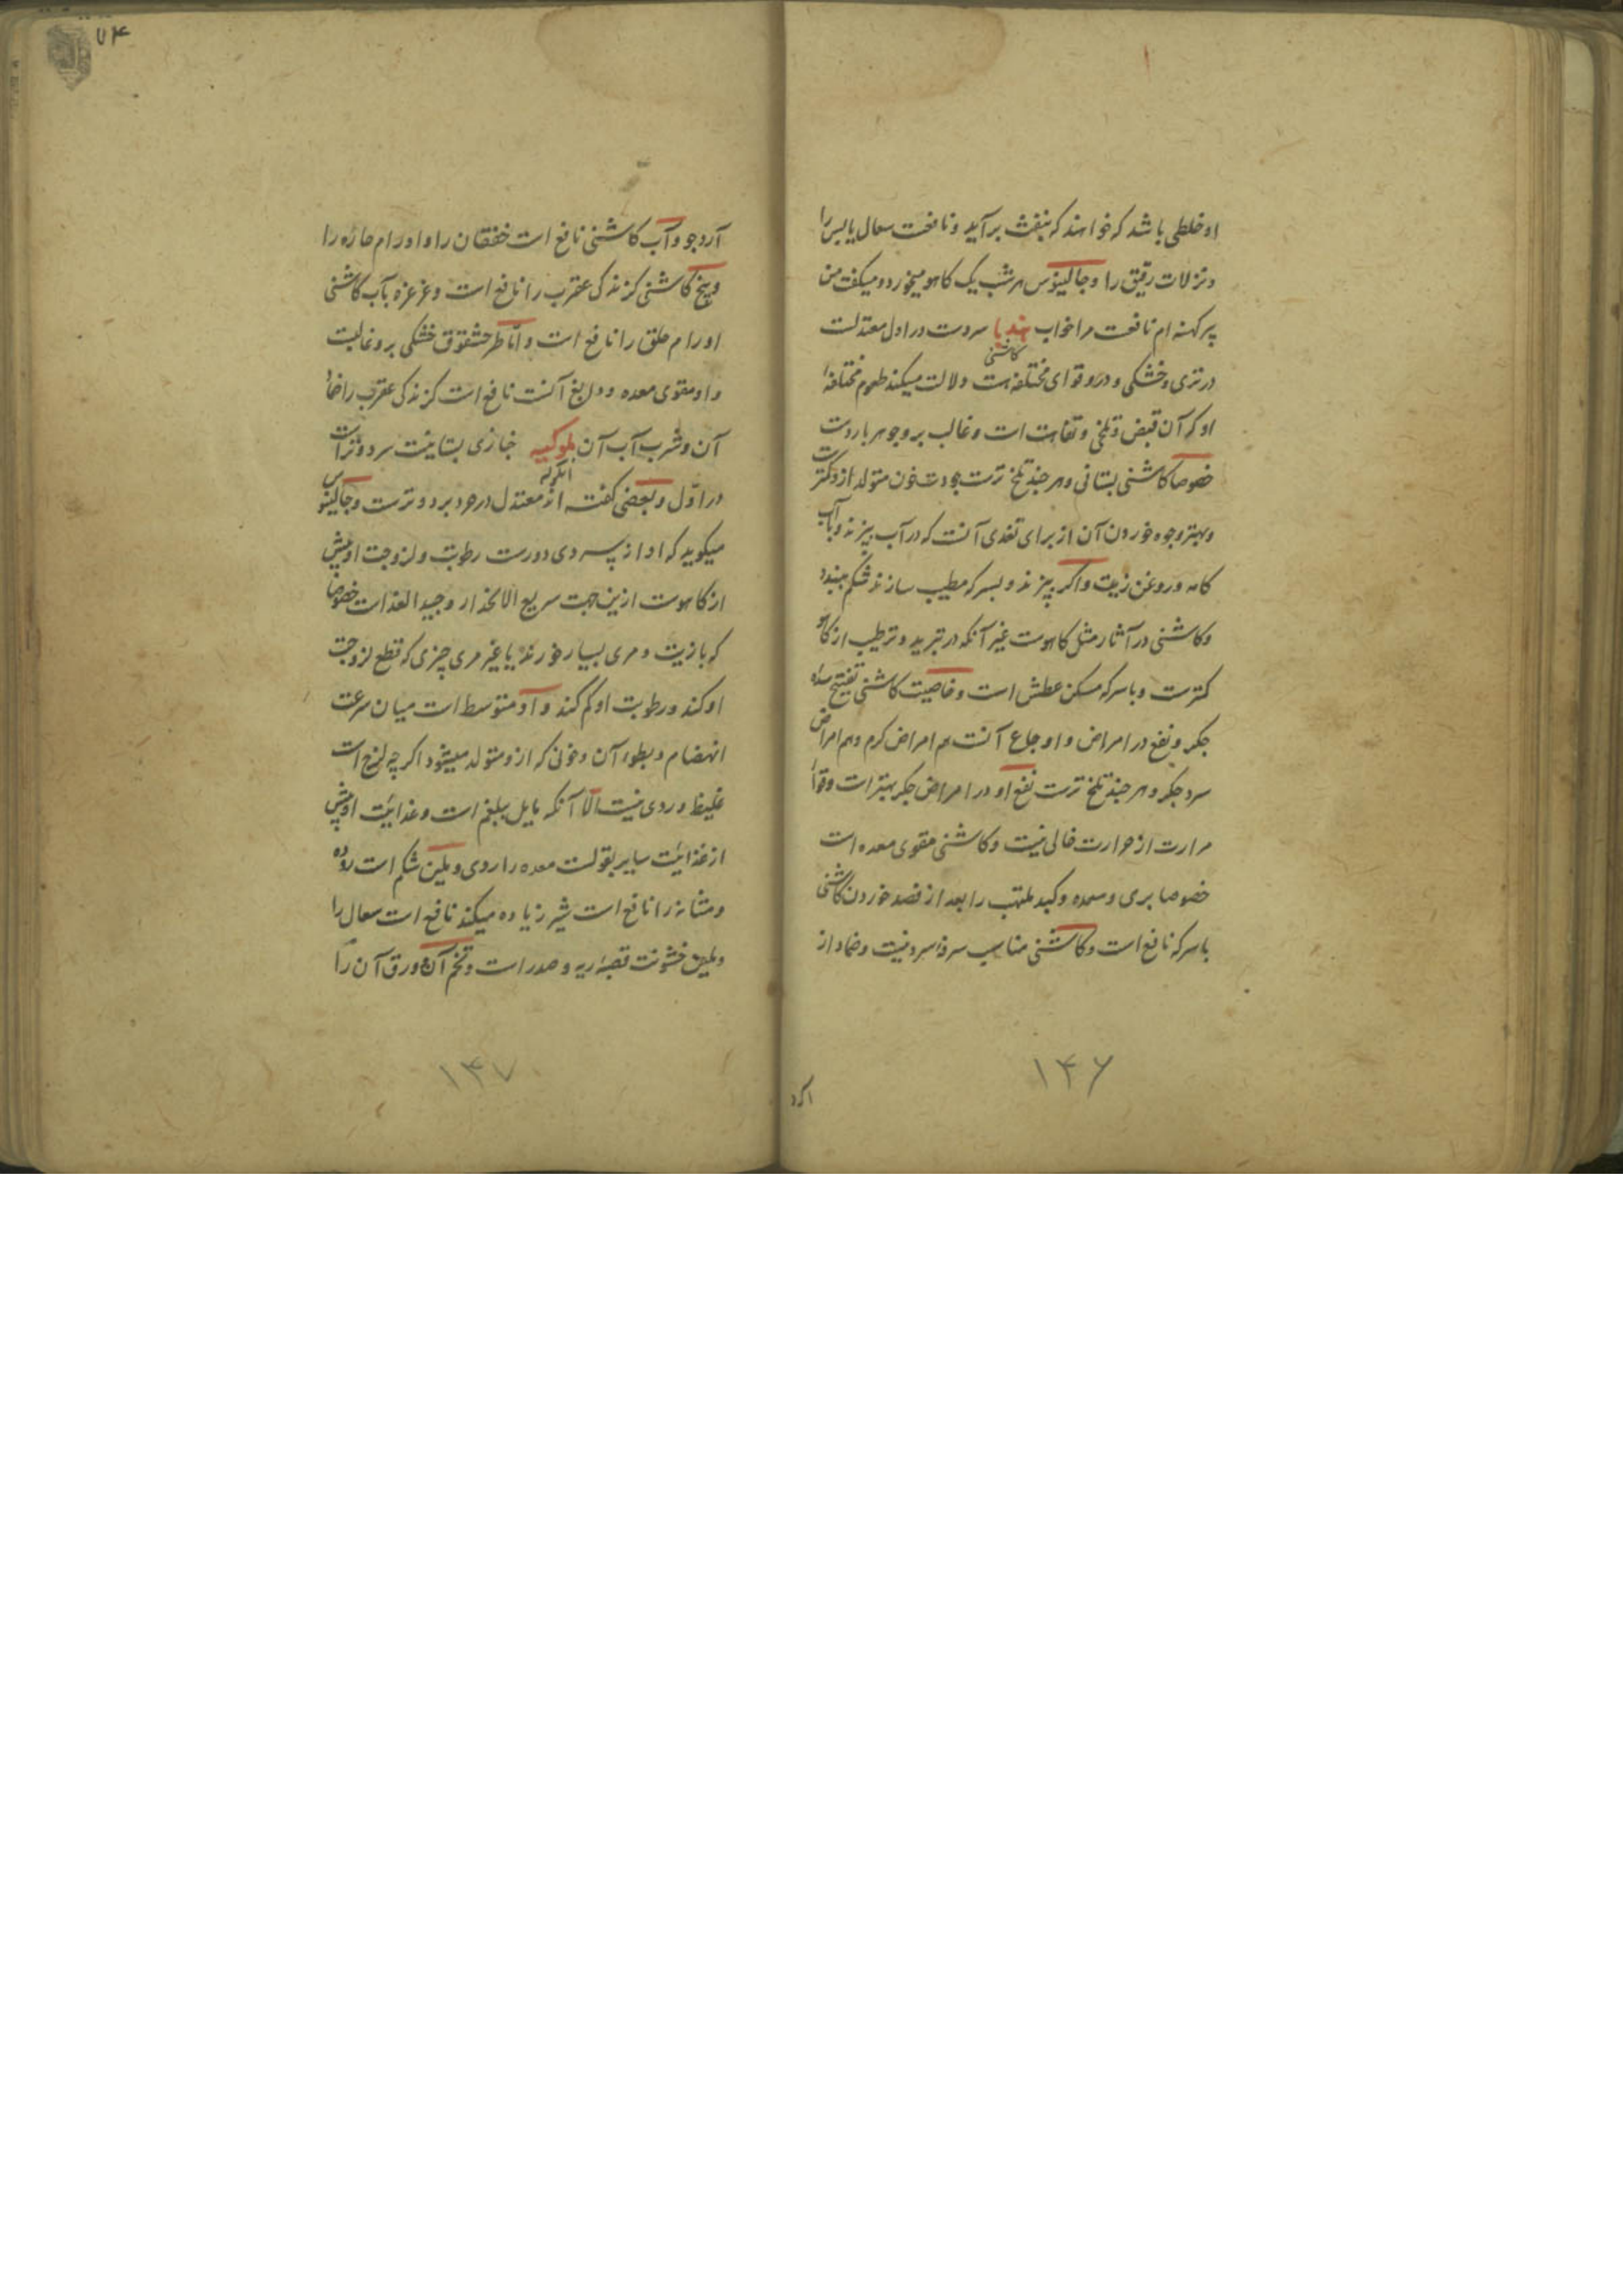 او خلطی باشد که خواهند که بنفث برآید و نافعست سعال یابس را
و نزلات رقیق را و جالینوس هر شب یک کاهو میخورد و میکفت من
پیر کهنه ام نافعست مرا خواب هندبا سردست در اول معتدلست
کاشنی
در تری و خشکی و درو قوای مختلفه هست دلالت میکند طعوم مختلفهٔ
او که آن قبض و تلخی و تفاهت است و غالب برو جوهر باردست
خصوصا کاشنی بستانی و هر چند تلخ ترست برودت خون متولد ازو کمترست
و بهترین وجوه خوردن آن از برای تغذی آنست که در آب پزند و با آب
کامه و روغن زیت و اکر پزند و بسرکه مطیب سازند شکم ببندد
و کاشنی در آثار مثل کاهوست غیر آنکه در تبرید و ترطیب از کاهو
کمترست و با سرکه مسکن عطش است و خاصیت کاشنی تفتیح سده
جکر و نفع در امراض و اوجاع آنست هم امراض کرم و هم امراض
سرد جکر و هر چند تلخ ترست نفع او در امراض جکر بهتر است و قوا
مرارت از حرارت خالی نیست و کاشنی مقوی معده است
خصوصا بری و معده و کبد ملتهب را بعد از فصد خوردن کاشنی
با سرکه نافع است و کاشنی مناسب سرفه سرد نیست و ضماد از
۱۴۶
آرد
۷۴
آرد جو و آب کاشنی نافع است خفقان را و اورام حاره را
و بیخ کاشنی کزندکی عقرب را نافع است و غرغره بآب کاشنی
اورام حلق را نافع است و اما طرحشقوق خشکی برو غالبست
و او مقوی معده و دابغ آنست نافع است کزندکی عقرب را ضماد
آن و شرب آب آن ملوکیه خبازی بستانیست سرد و تر است
در اول و بعضی کفته اند معتدل در حر و برد و ترست و جالینوس
میکوید که او از سردی دورست رطوبت و لزوجت او بیش
از کاهوست ازین جهت سریع الانحدار و جید الغذاست خصوصا
که با زیت و مری بسیار خورند یا غیر مری چیزی که قطع لزوجت
او کند و رطوبت او کم کند و او متوسط است میان سرعت
انهضام و بطوء آن و خونی که ازو متولد میشود اکر چه لزج است
غلیظ و ردی نیست الا آنکه مایل ببلغم است و غذائیت او بیش
از غذائیت سایر بقولست معده را ردی و ملین شکم است روده
و مثانه را نافع است شیر زیاده میکند نافع است سعال را
و ملین خشونت قصبهٔ ریه و صدر است و تخم آن و ورق آن را
۱۴۷